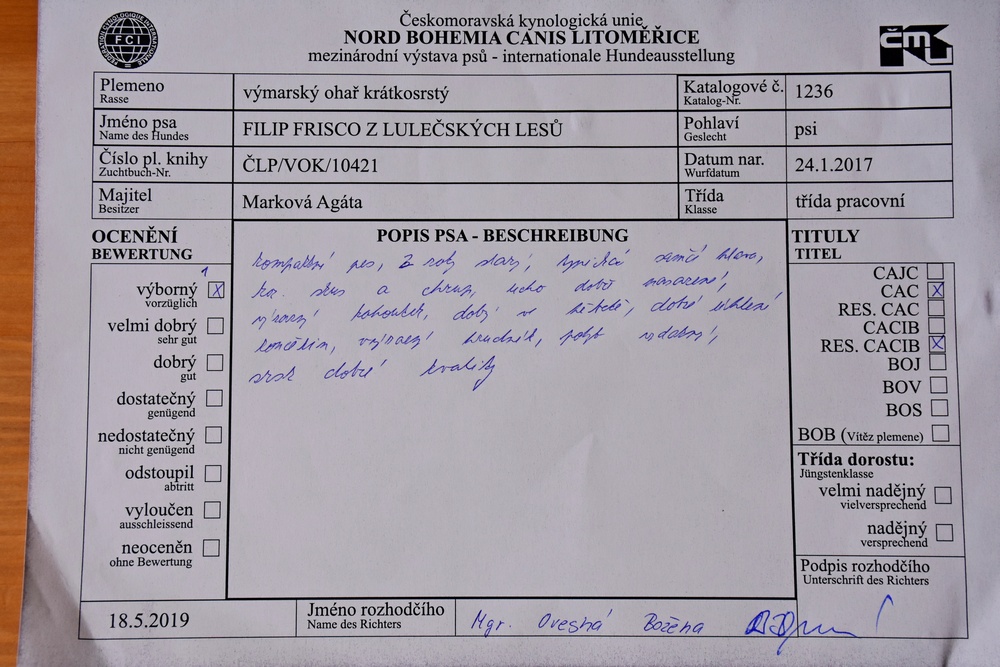 FCI
Českomoravská kynologická unie
NORD BOHEMIA CANIS LITOMĚŘICE
mezinárodní výstava psů - internationale Hundeausstellung
ČMKU
Plemeno
Rasse
výmarský ohař krátkosrstý
Katalogové č.
Katalog-Nr.
1236
Jméno psa
Name des Hundes
FILIP FRISCO Z LULEČSKÝCH LESŮ
Pohlaví
Geslecht
psi
Číslo pl. knihy
Zuchtbuch-Nr.
ČLP/VOK/10421
Datum nar.
Wurfdatum
24.1.2017
Majitel
Besitzer
Marková Agáta
Třída
Klasse
třída pracovní
OCENĚNÍ
BEWERTUNG
1
výborný X
vorzüglich
velmi dobrý
sehr gut
dobrý
gut
dostatečný
genügend
nedostatečný
nicht genügend
odstoupil
abtritt
vyloučen
ausschleissend
neoceněn
ohne Bewertung
POPIS PSA - BESCHREIBUNG
kompaktní pes, 2 roky starý, typická samčí hlava,
skus a chrup, ucho dobře nasazené,
výrazný kohoutek, dobrý v dobré úhlení
končetin, výrazný hrudník, pohyb
srst dobré kvality
TITULY
TITEL
CAJC
CAC X
RES. CAC
CACIB
RES. CACIB X
BOJ
BOV
BOS
BOB (Vítěz plemene)
Třída dorostu:
Jüngstenklasse
velmi nadějný
vielversprechend
nadějný
versprechend
Podpis rozhodčího
Unterschrift des Richters
18.5.2019
Jméno rozhodčího
Name des Richters
Mgr. Ovesná Božena